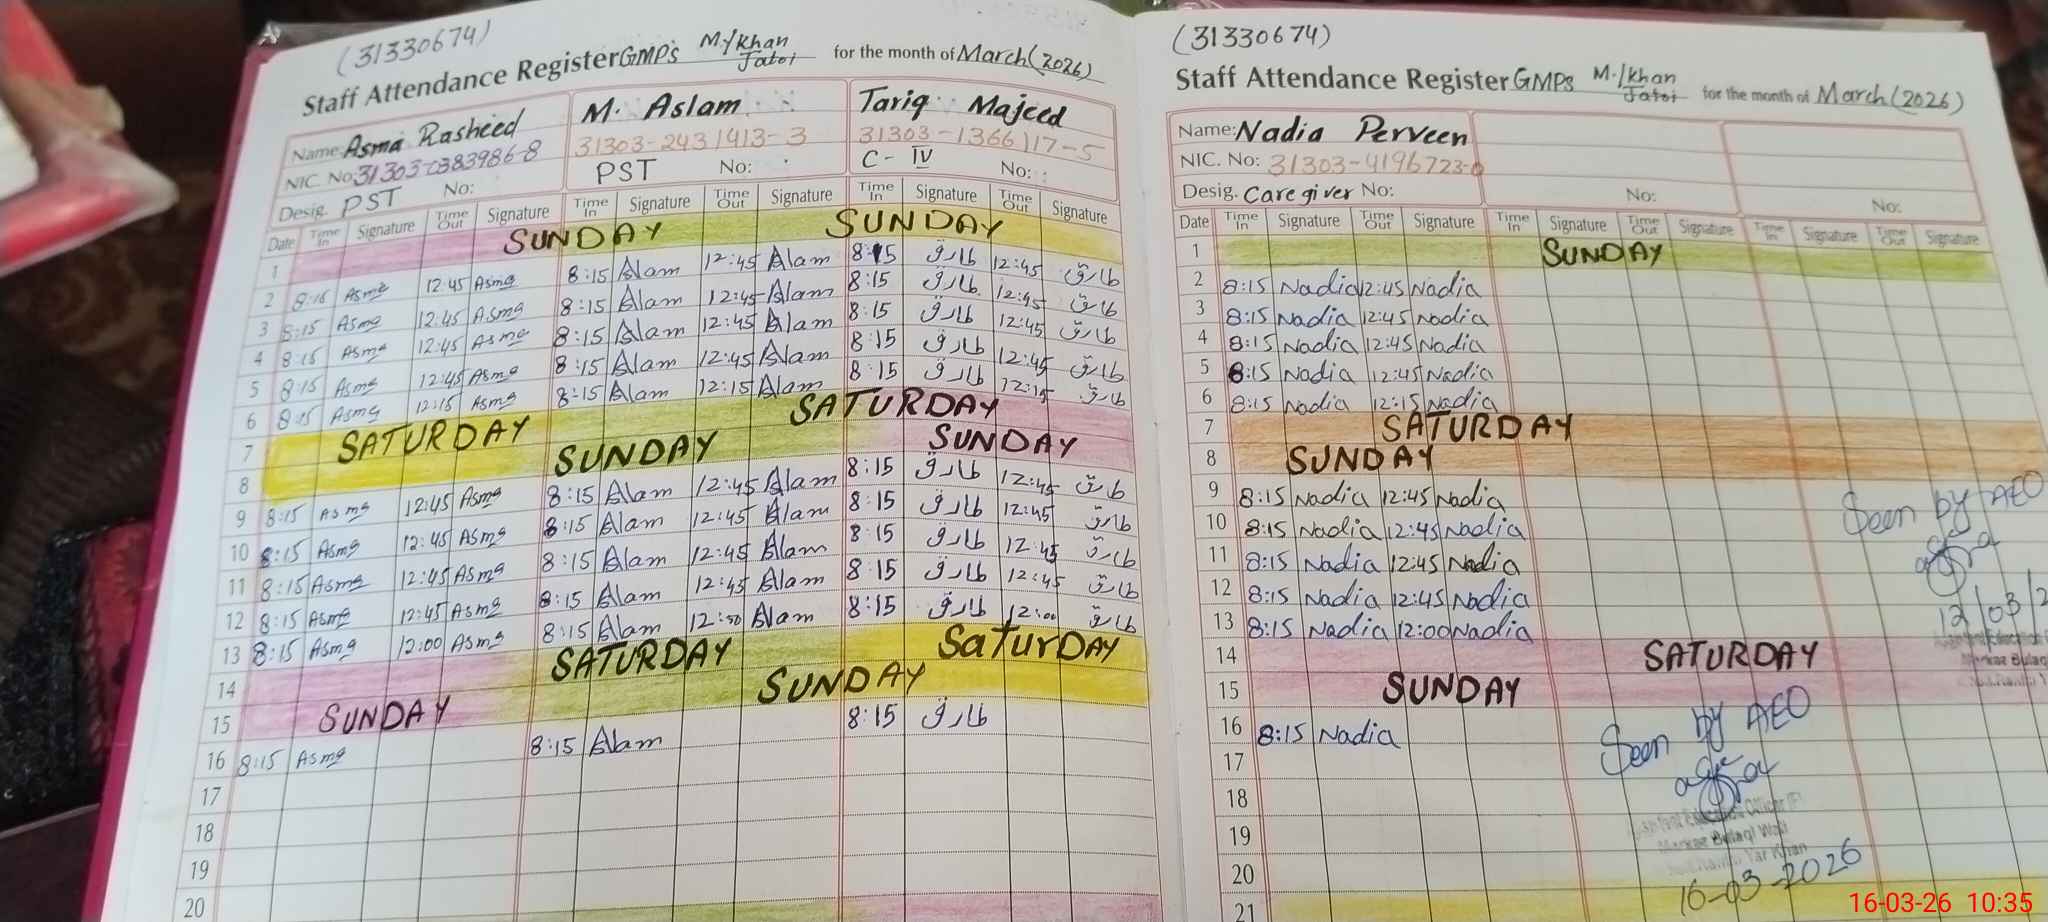 (31330674)
Staff Attendance Register GMPs M.Y/Khan Jatoi for the month of March (2026)
Name: Asma Rasheed M. Aslam Tariq Majeed
NIC. No: 31303-0383986-8 31303-2431413-3 31303-1366117-5
Desig. PST No: PST No: C-IV No:
Date Time In Signature Time Out Signature Time In Signature Time Out Signature Time In Signature Time Out Signature
1 SUNDAY SUNDAY
2 8:15 Asma 12:45 Asma 8:15 Aslam 12:45 Aslam 8:15 طارق 12:45 طارق
3 8:15 Asma 12:45 Asma 8:15 Aslam 12:45 Aslam 8:15 طارق 12:45 طارق
4 8:15 Asma 12:45 Asma 8:15 Aslam 12:45 Aslam 8:15 طارق 12:45 طارق
5 8:15 Asma 12:45 Asma 8:15 Aslam 12:45 Aslam 8:15 طارق 12:45 طارق
6 8:15 Asma 12:15 Asma 8:15 Aslam 12:15 Aslam 8:15 طارق 12:15 طارق
7 SATURDAY SATURDAY
8 SUNDAY SUNDAY
9 8:15 Asma 12:45 Asma 8:15 Aslam 12:45 Aslam 8:15 طارق 12:45 طارق
10 8:15 Asma 12:45 Asma 8:15 Aslam 12:45 Aslam 8:15 طارق 12:45 طارق
11 8:15 Asma 12:45 Asma 8:15 Aslam 12:45 Aslam 8:15 طارق 12:45 طارق
12 8:15 Asma 12:45 Asma 8:15 Aslam 12:45 Aslam 8:15 طارق 12:45 طارق
13 8:15 Asma 12:00 Asma 8:15 Aslam 12:00 Aslam 8:15 طارق 12:00 طارق
14 SATURDAY SaturDAY
15 SUNDAY SUNDAY
16 8:15 Asma 8:15 Aslam 8:15 طارق
17
18
19
20
(31330674)
Staff Attendance Register GMPs M.Y/Khan Jatoi for the month of March (2026)
Name: Nadia Perveen
NIC. No: 31303-4196723-0
Desig. Care giver No: No: No:
Date Time In Signature Time Out Signature Time In Signature Time Out Signature Time In Signature Time Out Signature
1 SUNDAY
2 8:15 Nadia 12:45 Nadia
3 8:15 Nadia 12:45 Nadia
4 8:15 Nadia 12:45 Nadia
5 8:15 Nadia 12:45 Nadia
6 8:15 Nadia 12:15 Nadia
7 SATURDAY
8 SUNDAY
9 8:15 Nadia 12:45 Nadia
10 8:15 Nadia 12:45 Nadia
11 8:15 Nadia 12:45 Nadia
12 8:15 Nadia 12:45 Nadia
13 8:15 Nadia 12:00 Nadia
14 SATURDAY
15 SUNDAY
16 8:15 Nadia
17
18
19
20
21
Seen by AEO
12/03/2
Markaz Bulaqi
Seen by AEO
Assistant Education Officer (F)
Markaz Bulaqi Wali
Yar Khan
16-03-2026
16-03-26 10:35